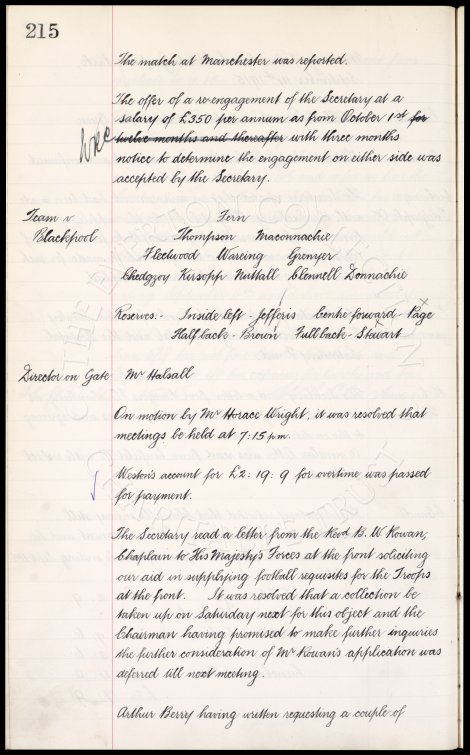 215
The match at Manchester was reported.
The offer of a re-engagement of the Secretary at a
salary of £350 per annum as from October 1st for
twelve months and thereafter with three months
notice to determine the engagement on either side was
accepted by the Secretary.
Team v Fern
Blackpool Thompson Maconnachie
Fleetwood Wareing Grenyer
Chedgzoy Kirsopp Nuttall Clennell Donnachie
Reserves:- Inside left - Jefferis Centre forward - Page
Half back - Brown Full back - Stewart
Director on Gate Mr Halsall
On motion by Mr Horace Wright, it was resolved that
meetings be held at 7:15 pm.
Weston's account for £2:19:9 for overtime was passed
for payment.
The Secretary read a letter from the Revd B. W Rowan,
Chaplain to His Majesty's Forces at the front soliciting
our aid in supplying football requisites for the Troops
at the front. It was resolved that a collection be
taken up on Saturday next for this object and the
Chairman having promised to make further inquiries
the further consideration of Mr Rowan's application was
deferred till next meeting.
Arthur Berry having written requesting a couple of